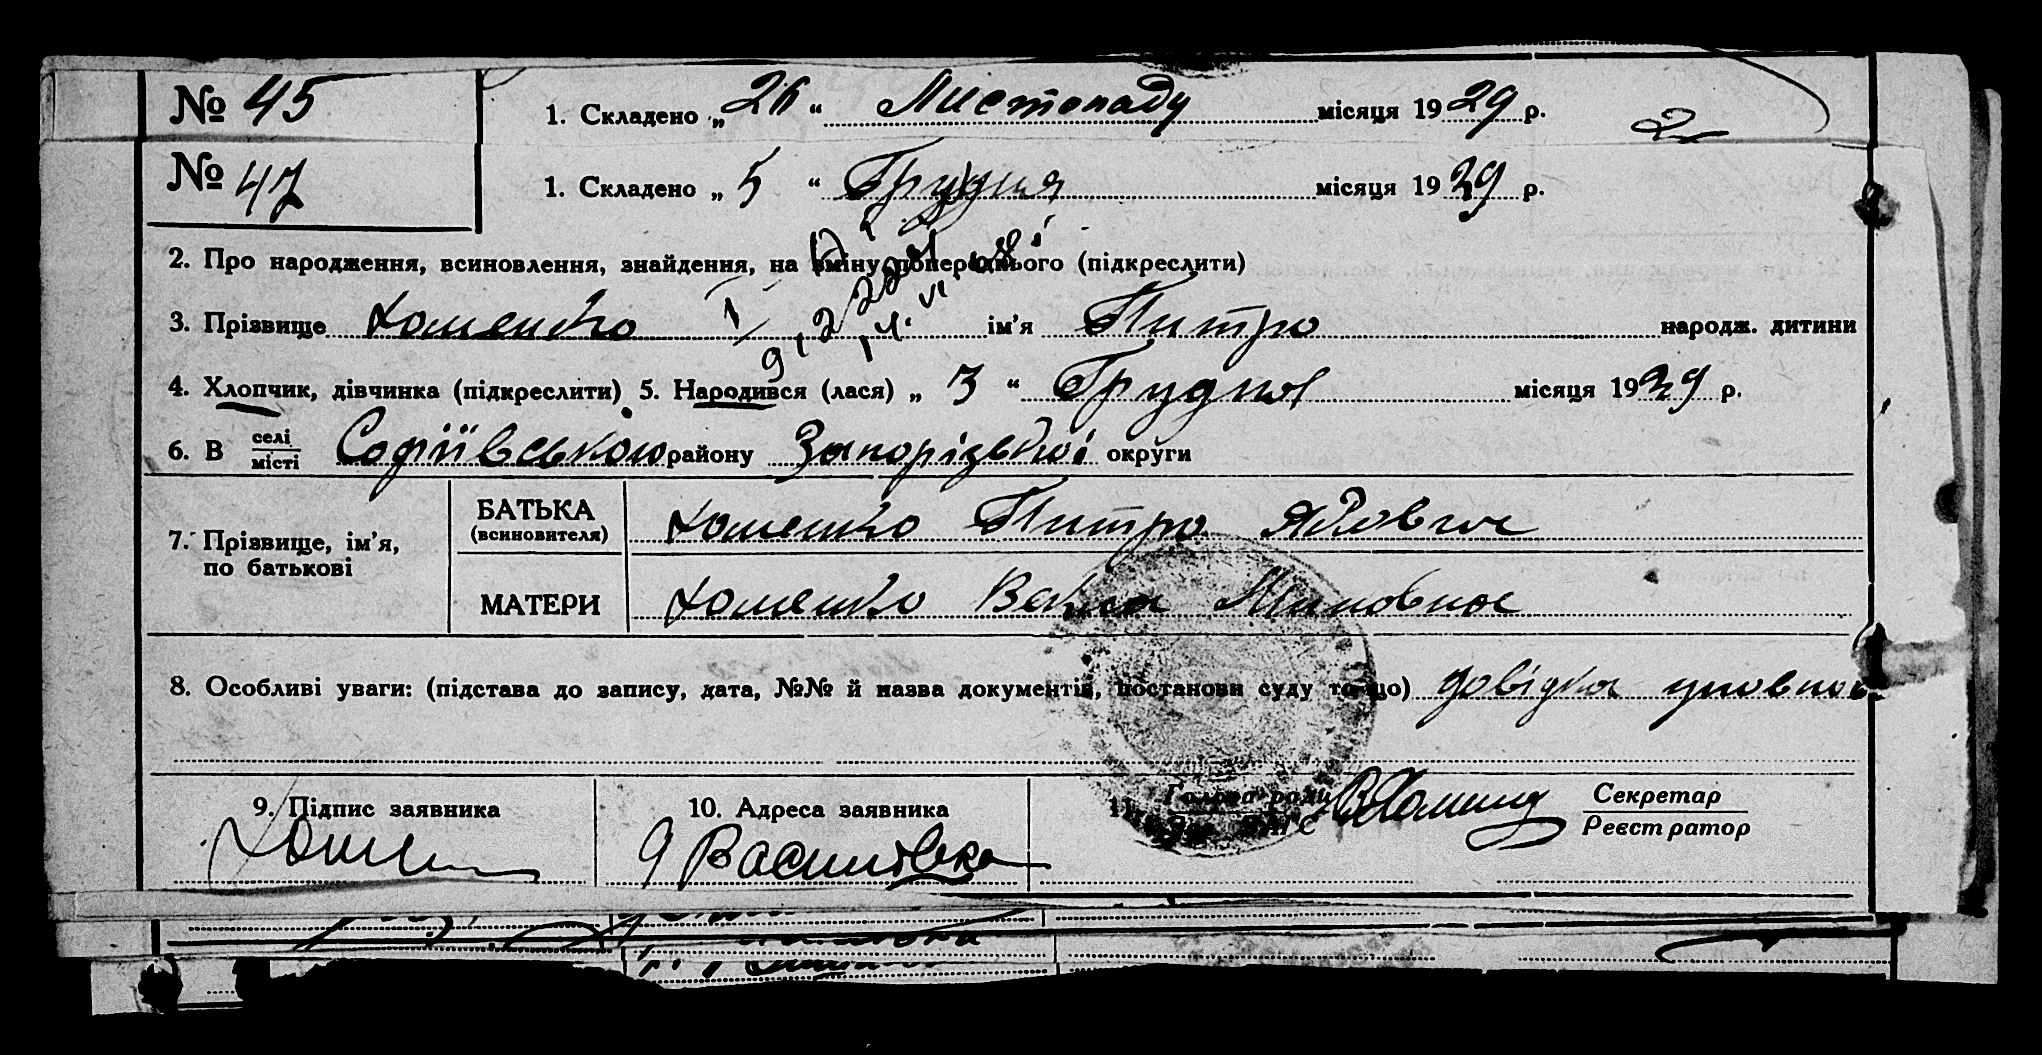 № 45 1. Складено „26“ Листопаду місяця 1929 р.
№ 47 1. Складено „5“ Грудня місяця 1929 р.
2. Про народження, всиновлення, знайдення, на зміну попереднього (підкреслити)
3. Прізвище Хоменко ім'я Питро народж. дитини
4. Хлопчик, дівчинка (підкреслити) 5. Народився (лася) „3“ Грудня місяця 1929 р.
6. В селі місті Софіївського району Запорізької округи
7. Прізвище, ім'я, по батькові
БАТЬКА (всиновителя) Хоменко Питро
МАТЕРИ Хоменко
8. Особливі уваги: (підстава до запису, дата, №№ й назва документів, постанови суду то-що) довідка
9. Підпис заявника
10. Адреса заявника
11. Голова ради ЗАГС
Секретар
Реєстратор
Хоме
Василівка